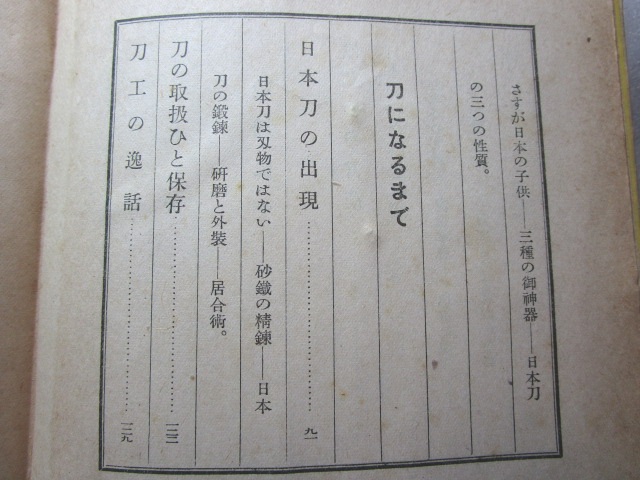 さすが日本の子供——三種の御神器——日本刀
の三つの性質。
刀になるまで
日本刀の出現………………………九一
日本刀は刄物ではない——砂鐵の精錬——日本
刀の鍛錬——研磨と外裝——居合術。
刀の取扱ひと保存………………………一三二
刀工の逸話………………………一三九